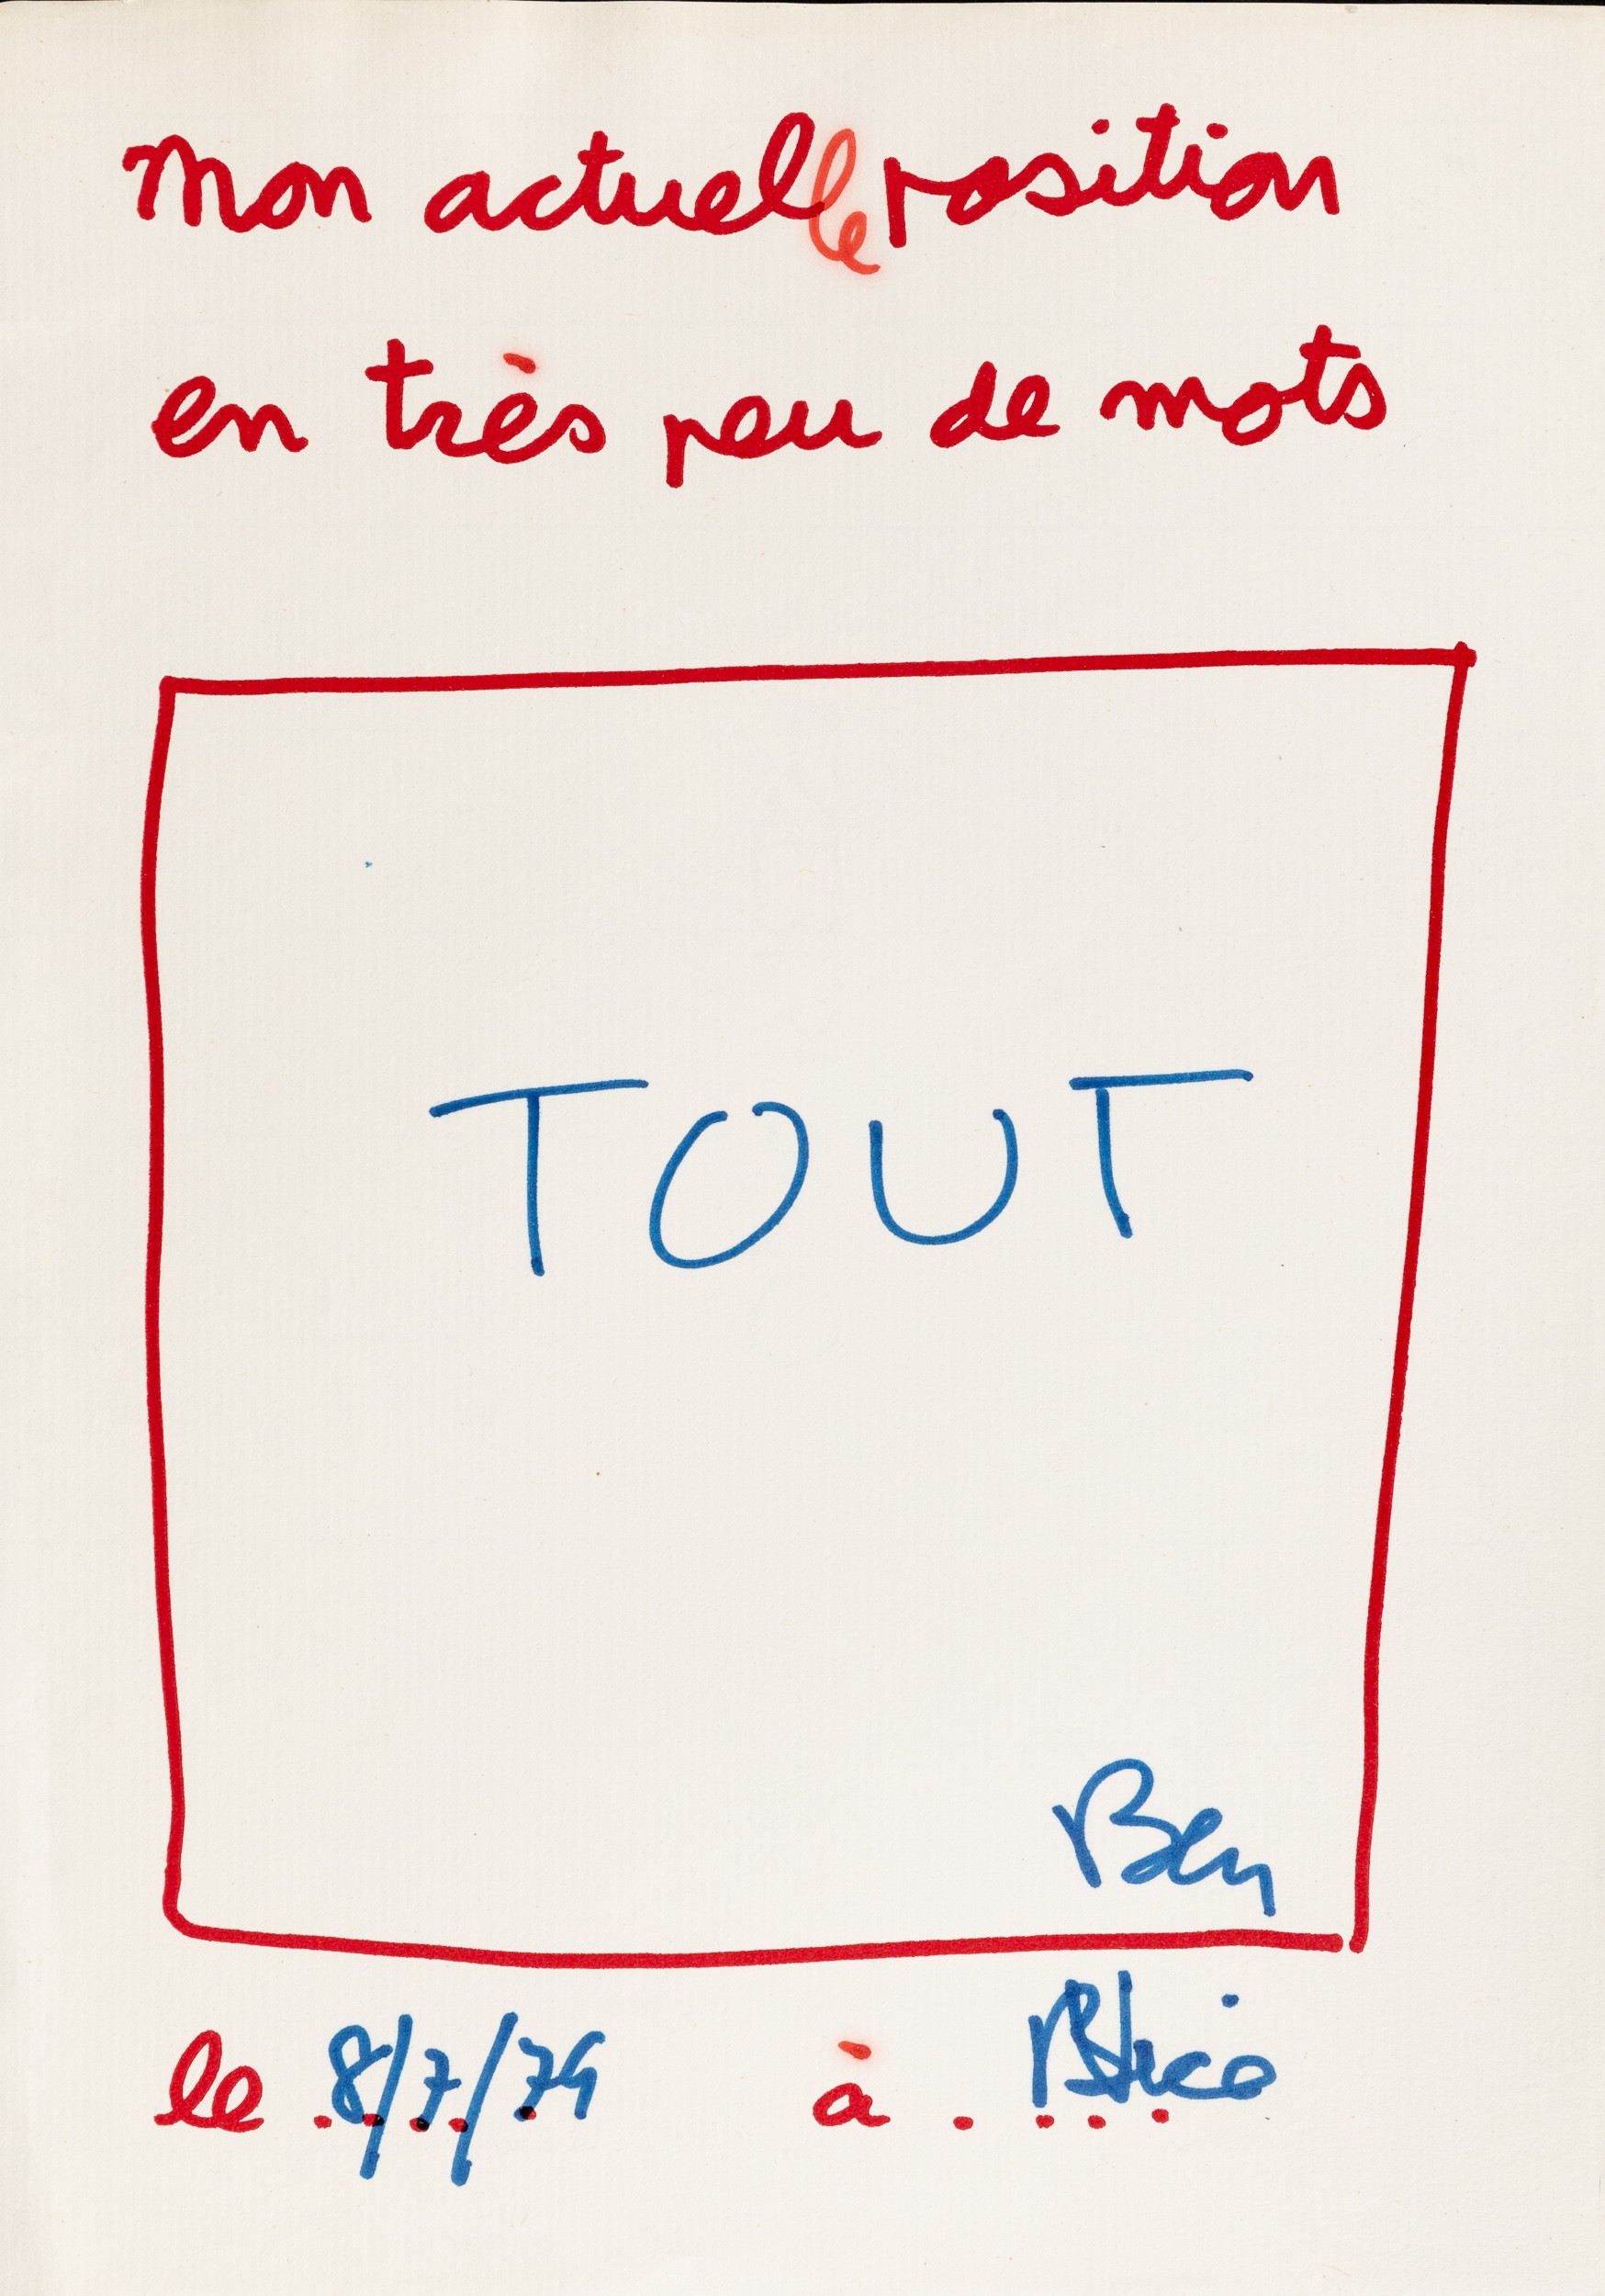 Mon actuelle position
en très peu de mots
TOUT
Ben
le 8/7/79 à Nice